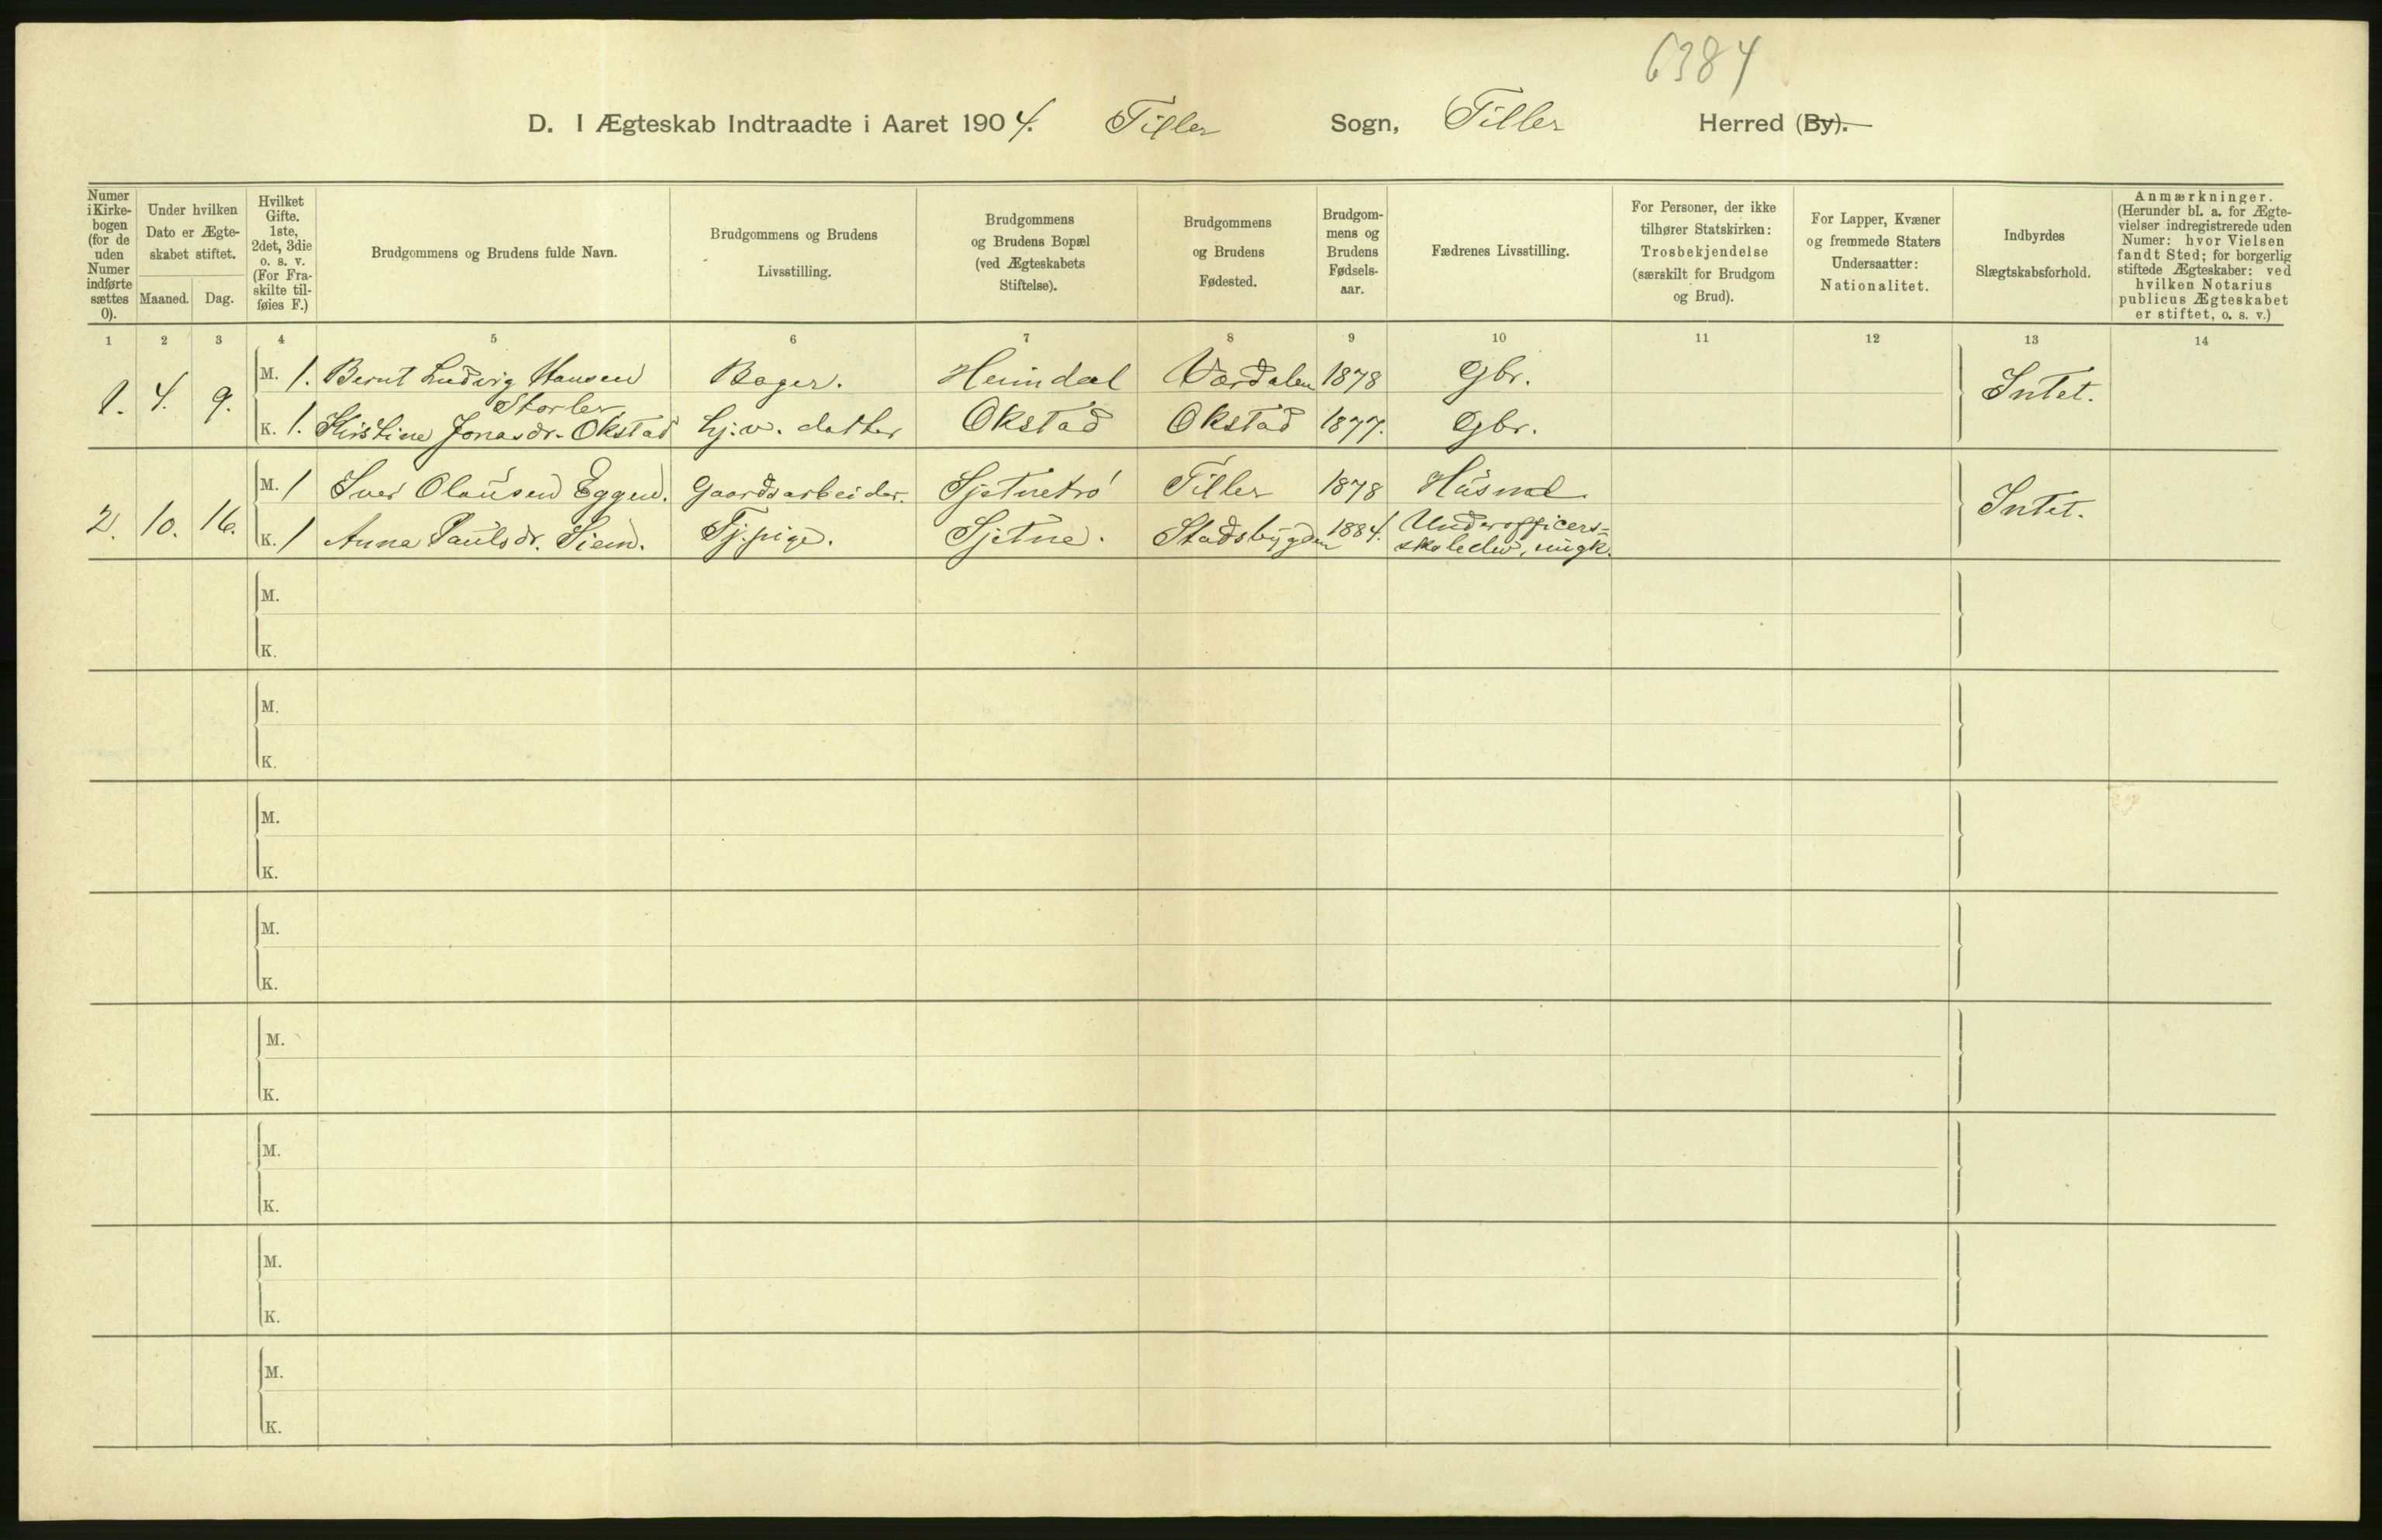 6384
D. I Ægteskab Indtraadte i Aaret 1904. Tiller Sogn, Tiller Herred (By).
Numer i Kirkebogen (for de uden Numer indførte sættes 0).
Under hvilken Dato er Ægteskabet stiftet.
Maaned. Dag.
Hvilket Gifte. 1ste, 2det, 3die o. s. v. (For Fraskilte tilføies F.)
Brudgommens og Brudens fulde Navn.
Brudgommens og Brudens Livsstilling.
Brudgommens og Brudens Bopæl (ved Ægteskabets Stiftelse).
Brudgommens og Brudens Fødested.
Brudgommens og Brudens Fødselsaar.
Fædrenes Livsstilling.
For Personer, der ikke tilhører Statskirken: Trosbekjendelse (særskilt for Brudgom og Brud).
For Lapper, Kvæner og fremmede Staters Undersaatter: Nationalitet.
Indbyrdes Slægtskabsforhold.
Anmærkninger. (Herunder bl. a. for Ægtevielser indregistrerede uden Numer: hvor Vielsen fandt Sted; for borgerlig stiftede Ægteskaber: ved hvilken Notarius publicus Ægteskabet er stiftet, o. s. v.)
1 2 3 4 5 6 7 8 9 10 11 12 13 14
1. 4. 9.
M. 1. Bernt Ludvig Hansen Bager. Heimdal Værdalen 1878 Gbr.
Intet.
K. 1. Kristine Jonasdr. Okstad hj.v. datter Okstad Okstad 1877. Gbr.
2. 10. 16.
M. 1 Iver Olausen Eggen. Gaardsarbeider. Sjetnetrø Tiller 1878 Husmd
Intet.
K. 1 Anna Paulsdr. Siem. Tj.pige. Sjetne. Stadsbygden 1884. Underofficers-
M.
K.
M.
K.
M.
K.
M.
K.
M.
K.
M.
K.
M.
K.
M.
K.